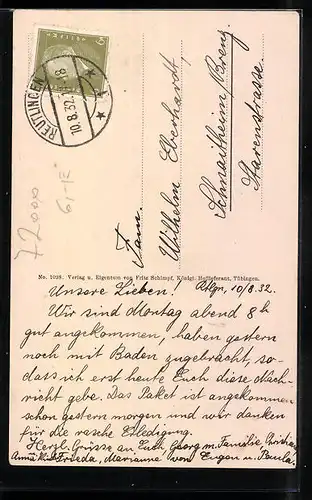 REUTLINGEN
10.8.32.
72000
Fam.
Wilhelm Eberhardt,
Schnaitheim/Brenz.
Starenstrasse.
No. 1028. Verlag u. Eigentum von Fritz Schimpf, Königl. Hoflieferant, Tübingen.
Unsere Lieben! Rtlgn, 10/8.32.
Wir sind Montag abend 8 h
gut angekommen, haben gestern
noch mit Baden zugebracht, so-
dass ich erst heute Euch diese Nach-
richt gebe. Das Paket ist angekommen
schon gestern morgen und wir danken
für die rasche Erledigung.
Herzl. Grüsse an Euch, Georg m. Familie,
Frieda, Marianne von Eugen u. Paula.